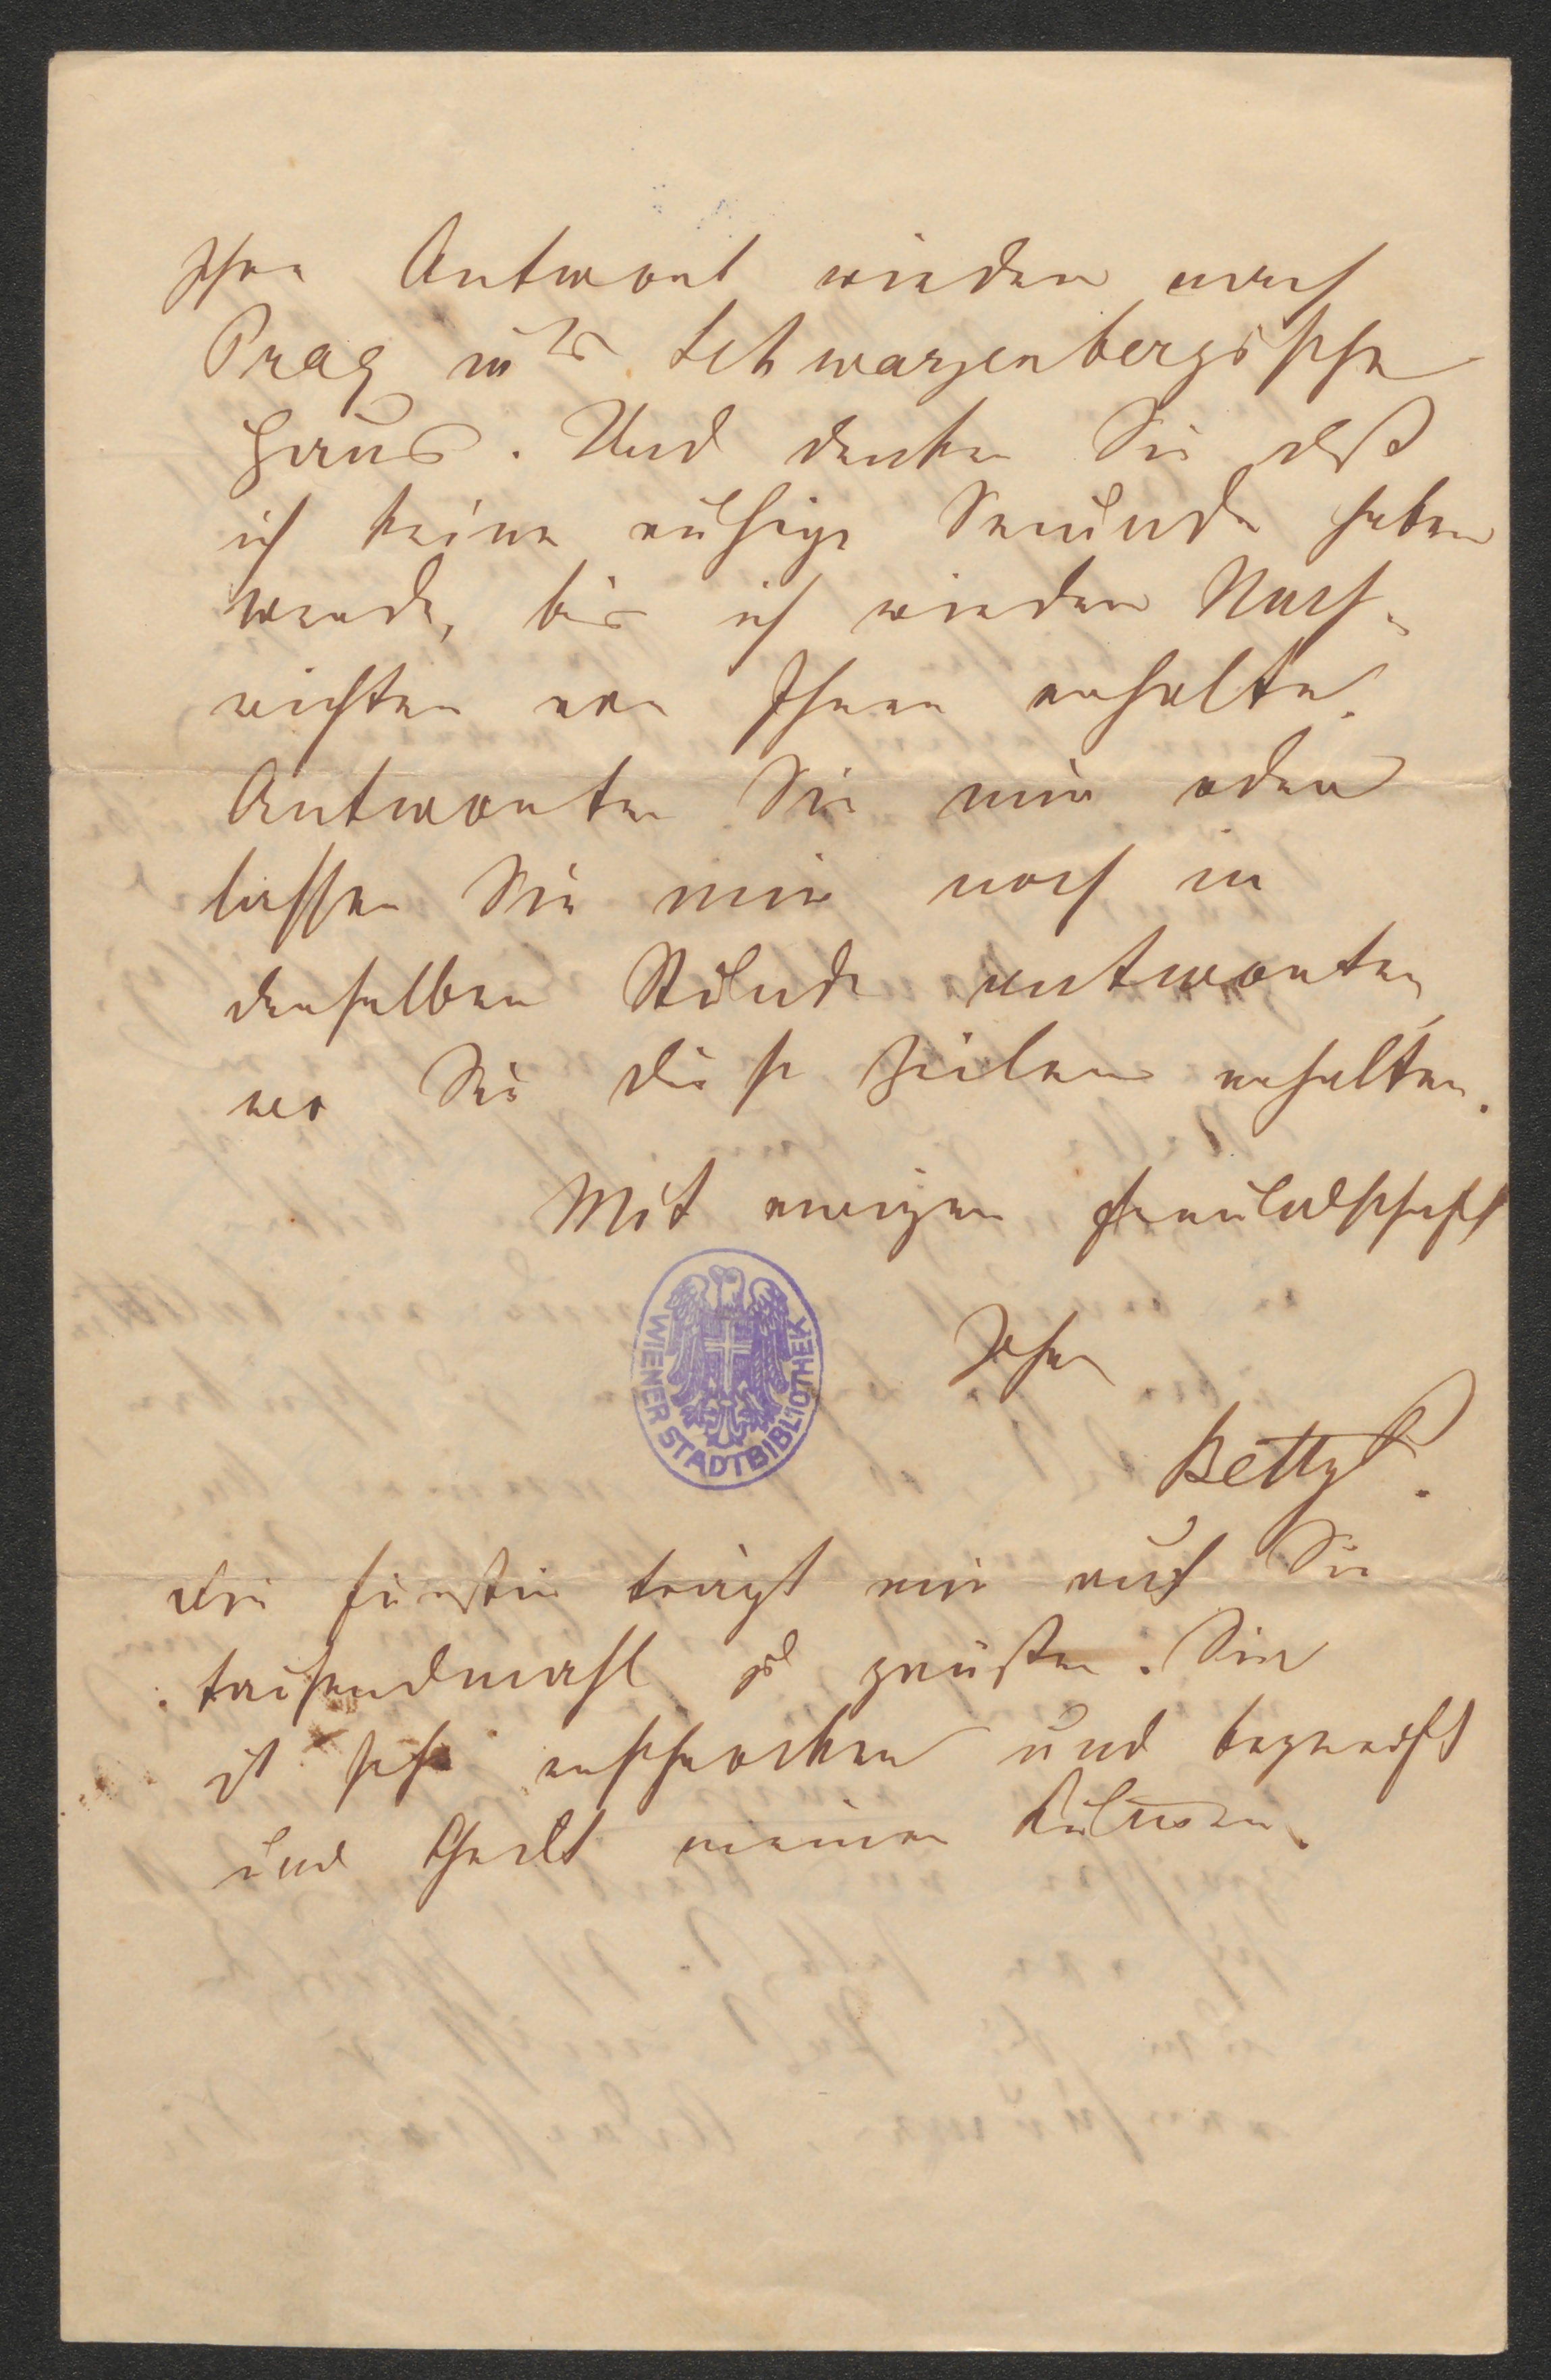 Ihre Antwort wieder nach
Prag in's Schwarzenbergische
Haus. Und denken Sie daß
ich keine ruhige Secunde haben
werde, bis ich wieder Nach-
richten von Ihnen erhalte.
Antworten Sie mir oder
lassen Sie mir noch in
derselben Stunde antworten,
wo Sie diese Zeilen erhalten.
Mit ewiger Freundschaft
Ihre
Betty P.
WIENER STADTBIBLIOTHEK
Die Fürstin trägt mir auf Sie
tausendmahl zu grüßen. Sie
ist sehr erschrocken und begreift
und theilt meinen